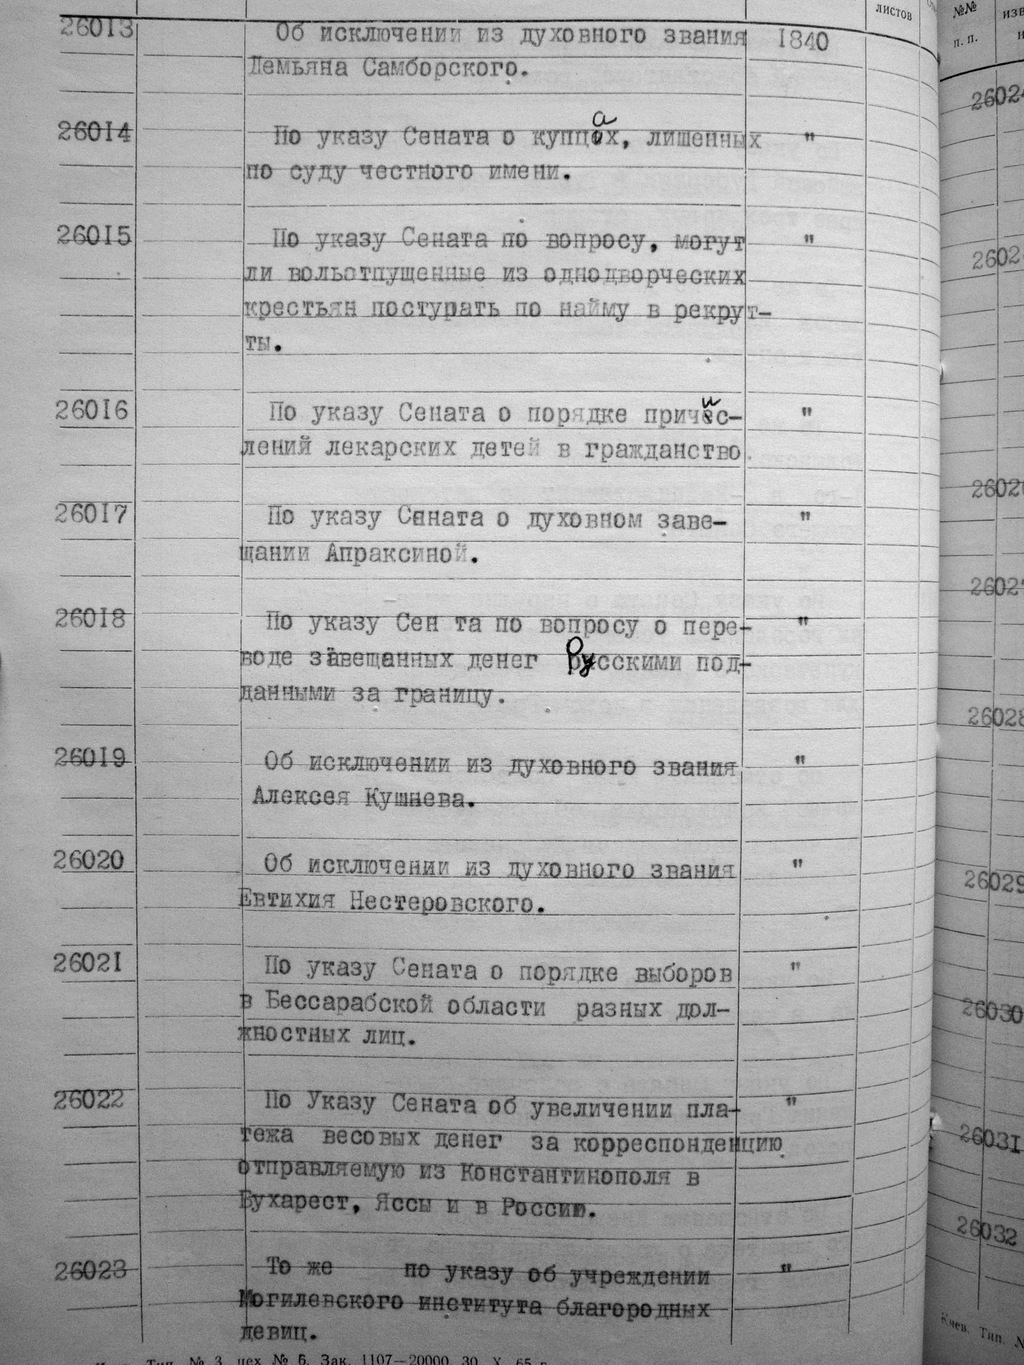 листов
№№
п. п.
26013 Об исключении из духовного звания 1840
Демьяна Самборского.
26014 По указу Сената о купцах, лишенных "
по суду честного имени.
26015 По указу Сената по вопросу, могут "
ли вольотпущенные из однодворческих
крестьян постурать по найму в рекрут-
ты.
26016 По указу Сената о порядке причис- "
лений лекарских детей в гражданство.
26017 По указу Сяната о духовном заве- "
щании Апраксиной.
26018 По указу Сен та по вопросу о пере- "
воде завещанных денег Русскими под-
данными за границу.
26019 Об исключении из духовного звания "
Алексея Кушнева.
26020 Об исключении из духовного звания "
Евтихия Нестеровского.
26021 По указу Сената о порядке выборов "
в Бессарабской области разных дол-
жностных лиц.
26022 По Указу Сената об увеличении пла- "
тежа весовых денег за корреспонденцию
отправляемую из Константинополя в
Бухарест, Яссы и в Россию.
26023 То же по указу об учреждении "
Могилевского института благородных
девиц.
Тип. № 3, цех № 6. Зак. 1107—20000. 30. X. 65 г.
26026
26027
26028
26029
26030
26031
26032
Киев. Тип. №